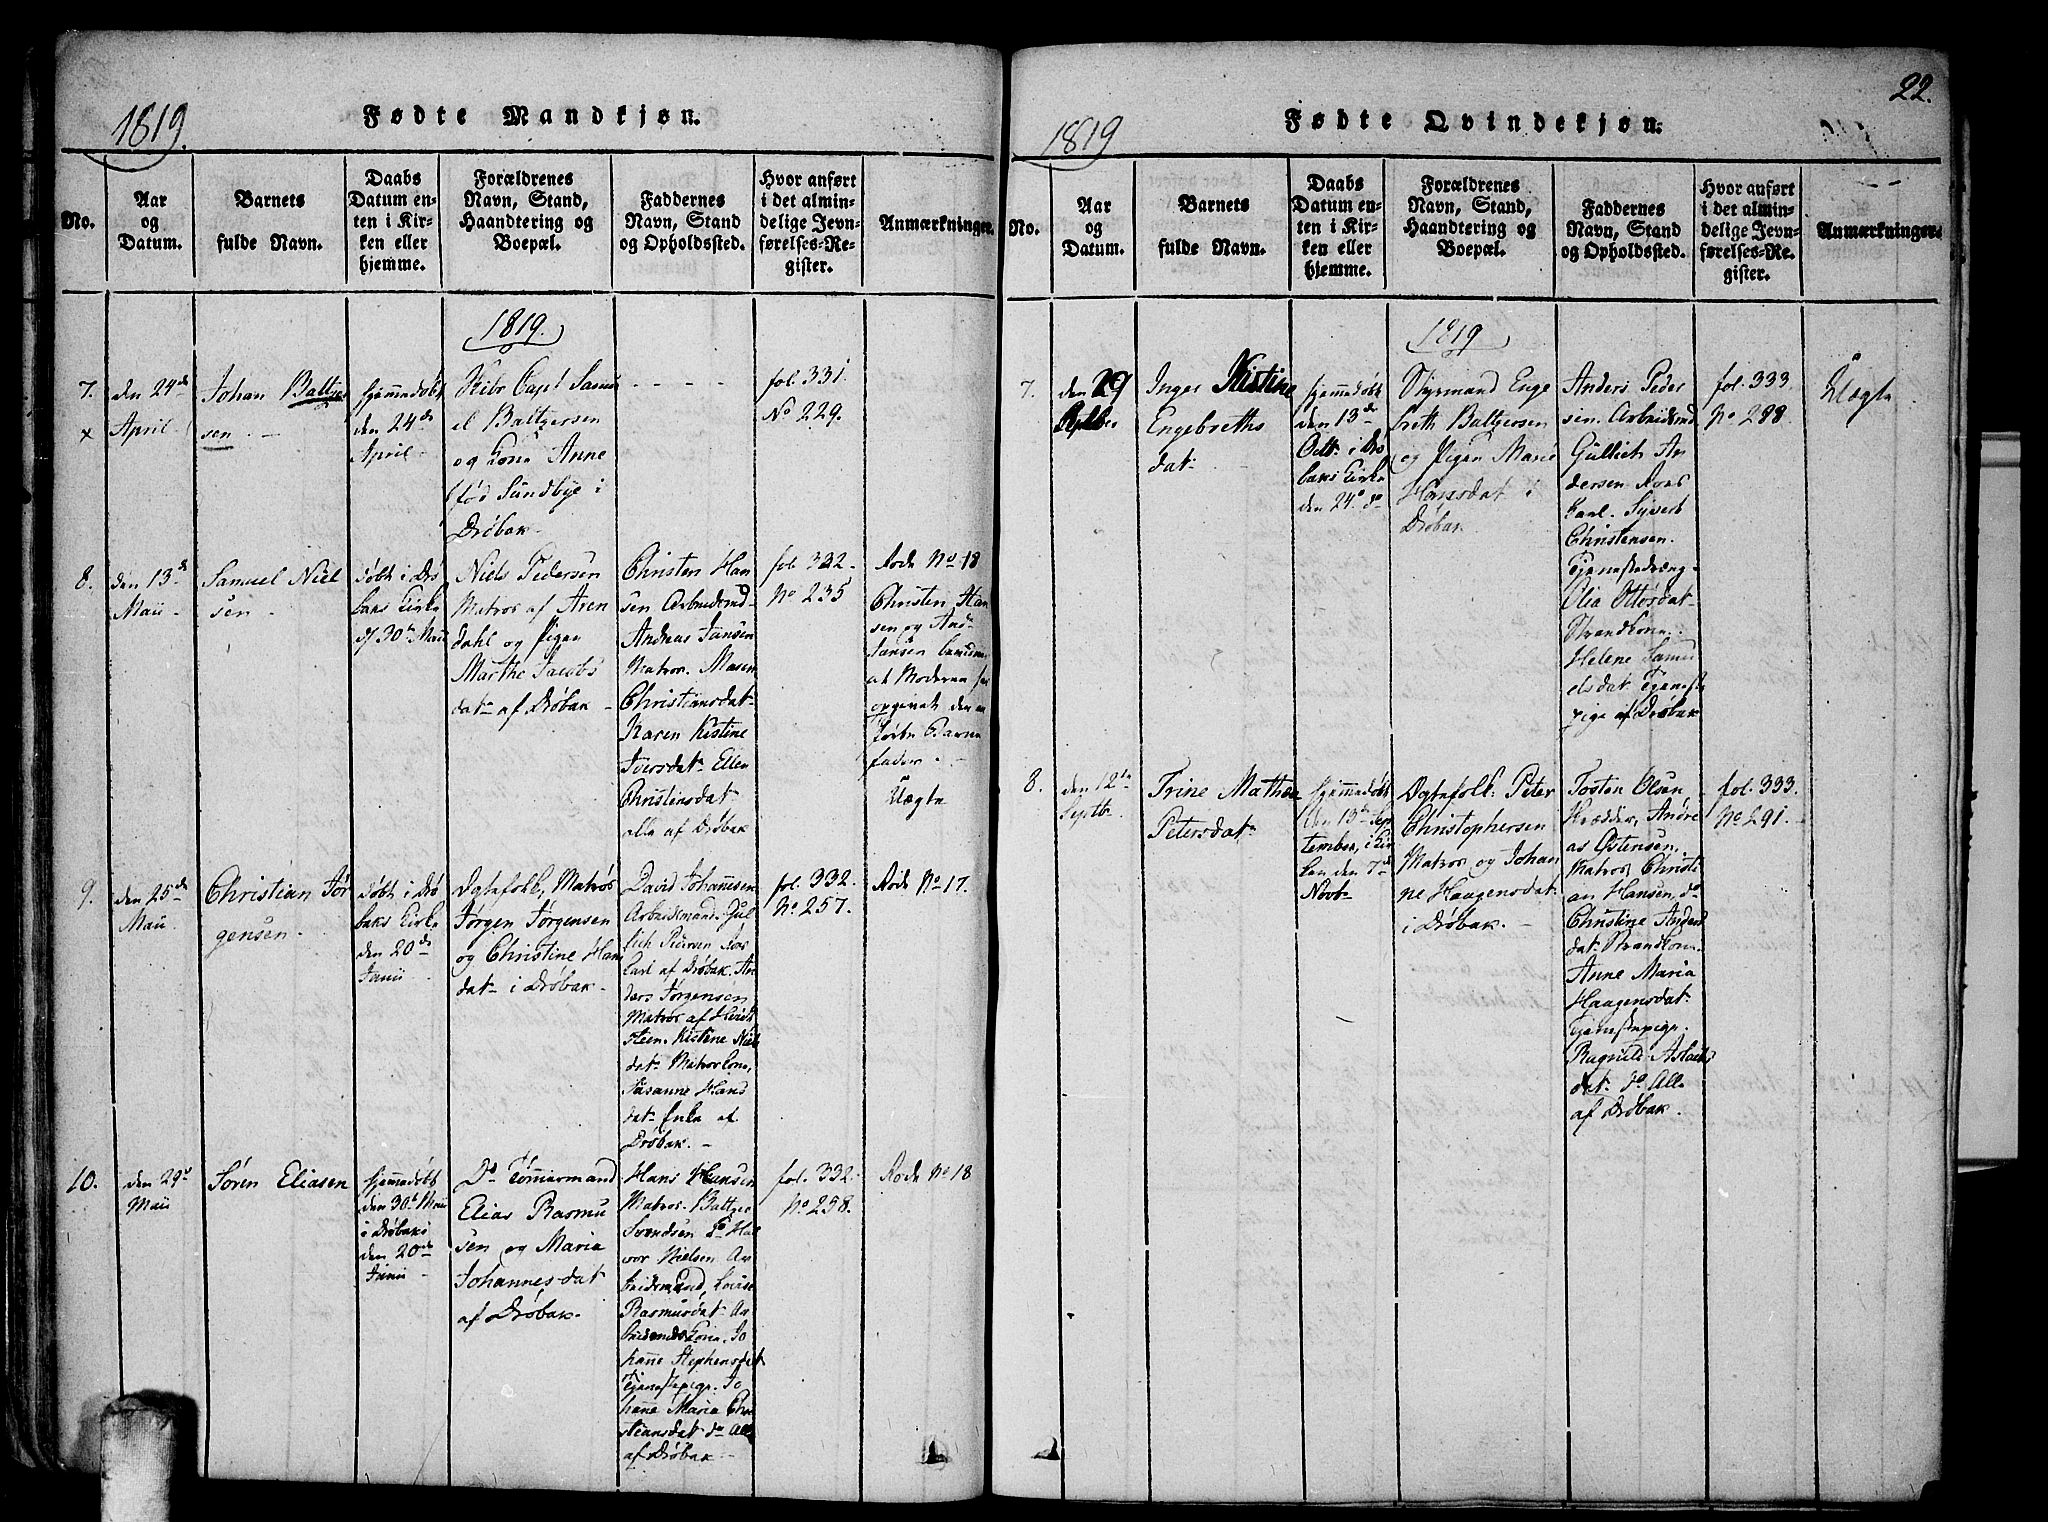 1819.
Fødte Mandkjøn.
No.
Aar
og
Datum.
Barnets
fulde Navn.
Daabs
Datum en-
ten i Kir-
ken eller
hjemme.
Forældrenes
Navn, Stand,
Haandtering og
Boepæl.
Faddernes
Navn, Stand
og Opholdssted.
Hvor anført
i det almin-
delige Jevn-
førelses-Re-
gister.
Anmærkninger.
1819.
7.
x
den 24de
April
Johan Baltzer
sen
hjemmedøbt
den 24de
April
Skibr Capt Samu
el Baltzersen
og Kone Anne
fød Sundbye i
Drøbak
- - - -
fol. 331.
No 229.
8.
den 13de
Maii
Samuel Niel
sen
døbt i Drø
baks Kirke
d. 30te Maii
Niels Pedersen
Matros af Aren
dahl og Pigen
Marthe Jacobs
dat af Drøbak
Christen Han
sen Arbeidsmd
Andreas Jansen
Matros. Maren
Christiansdat
Karen Kistine
Iversdat Ellen
Christensdat
alle af Drøbak
fol. 332.
No 235
Rode No 18
Christen Han
sen og And.
Jansen
at Moderen
opgivet den
Barne
fader.
Uægte
9.
den 25de
Maii
Christian Jør
gensen
Døbt i Drø
baks Kirke
den 20de
Junii
Ægtefolk, Matros
Jørgen Jørgensen
og Christine Hans
dat i Drøbak
David Johannesen
Arbeidsmand. Gul
lich Pedersen Ros
karl af Drøbak. An
ders Jørgensen
Matros af Hvidt
steen. Kistine Niels
dat Matroskone,
Susanne Hans
dat Enke af
Drøbak.
fol. 332.
No 257.
Rode No 17.
10.
den 29de
Maii
Søren Eliasen
hjemmedøbt
den 30te Maii
i Drøbaks
den 20de
Junii
Do Tømmermand
Elias Rasmu
sen og Maria
Johannesdat
af Drøbak.
Hans Hansen
Matros. Baltzer
Svendsen Do Hal
vor Nielsen Ar
beidsmand, Lovise
Rasmusdat Ar
beidsmds Kone. Jo
hanne Stephensdat
Tjenestepige. Jo
hanne Maria Chri
stiansdat do Alle
af Drøbak
fol. 332.
No 258.
Rode No 18
22.
1819
Fødte Qvindekjøn.
No.
Aar
og
Datum.
Barnets
fulde Navn.
Daabs
Datum en-
ten i Kir-
ken eller
hjemme.
Forældrenes
Navn, Stand,
Haandtering og
Boepæl.
Faddernes
Navn, Stand
og Opholdssted.
Hvor anført
i det almin-
delige Jevn-
førelses-Re-
gister.
Anmærkninger.
1819
7.
den 29
Inger Kistine
Engebreths
dat
hjemmedøbt
den 13de
Octr i Drø
baks Kirke
den 24 do
Styrmand Enge
breth Baltzersen
og Pigen Marie
Hansdat i
Drøbak
Anders Peder
sen. Arbeidsmd
Gullich An
dersen Roes
karl. Syvert
Christensen.
Tjenestedreng
Olia Ottersdat
Strandkone.
Helene Samu
elsdat Tjeneste
pige af Drøbak
fol. 333.
No 288.
Uægte
8.
den 12te
Septbr
Trine Mathea
Petersdat
hjemmedøbt
den 13de Sep
tember, i Kir
ken den 7de
Novbr
Ægtefolk: Peter
Christophersen
Matros og Johan
ne Haagensdat
i Drøbak.
Tosten Olsen
Skrædder, Andre
as Østensen,
Matros, Christi
an Hansen, do
Christine Anders
dat Strandkone.
Anne Maria
Haagensdat
Tjenestepige.
Ragnild Aslacks
dat. do Alle
af Drøbak.
fol. 333.
No 291.